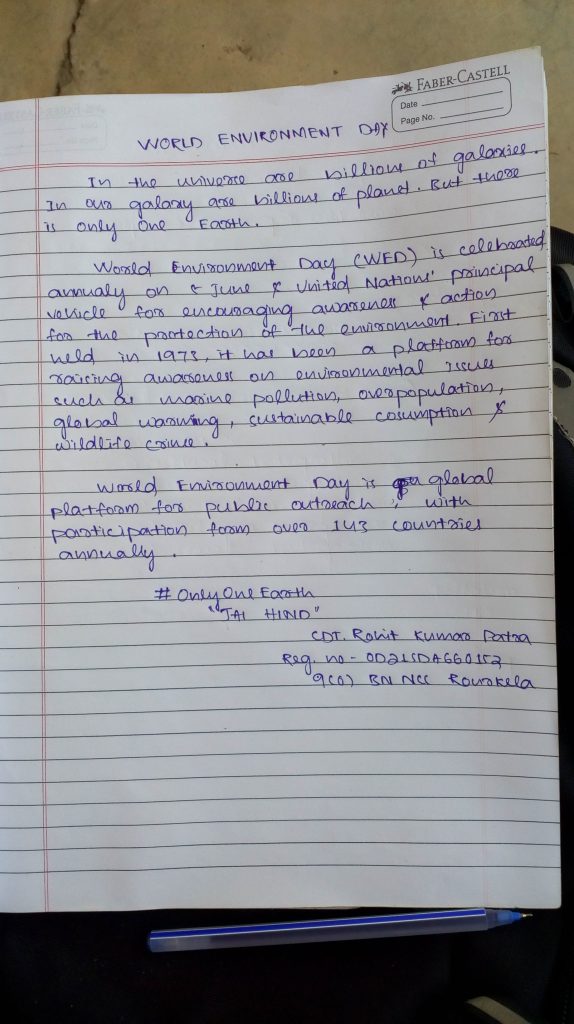 FABER-CASTELL
Date
Page No.
WORLD ENVIRONMENT DAY
In the universe are billions of galaxies.
In our galaxy are billions of planet. But there
is only One Earth.
World Environment Day (WED) is celebrated
annualy on 5 June & United Nations' principal
vehicle for encouraging awareness & action
for the protection of the environment. First
held in 1973, it has been a platform for
raising awareness on environmental issues
such as marine pollution, overpopulation,
global warming, sustainable cosumption &
wildlife crime.
World Environment Day is a global
platform for public outreach, with
participation form over 143 countries
annually.
# Only One Earth
"JAI HIND"
CDT. Rohit Kumar Patra
Reg. no - OD21SDA660152
9(O) BN NCC Rourkela